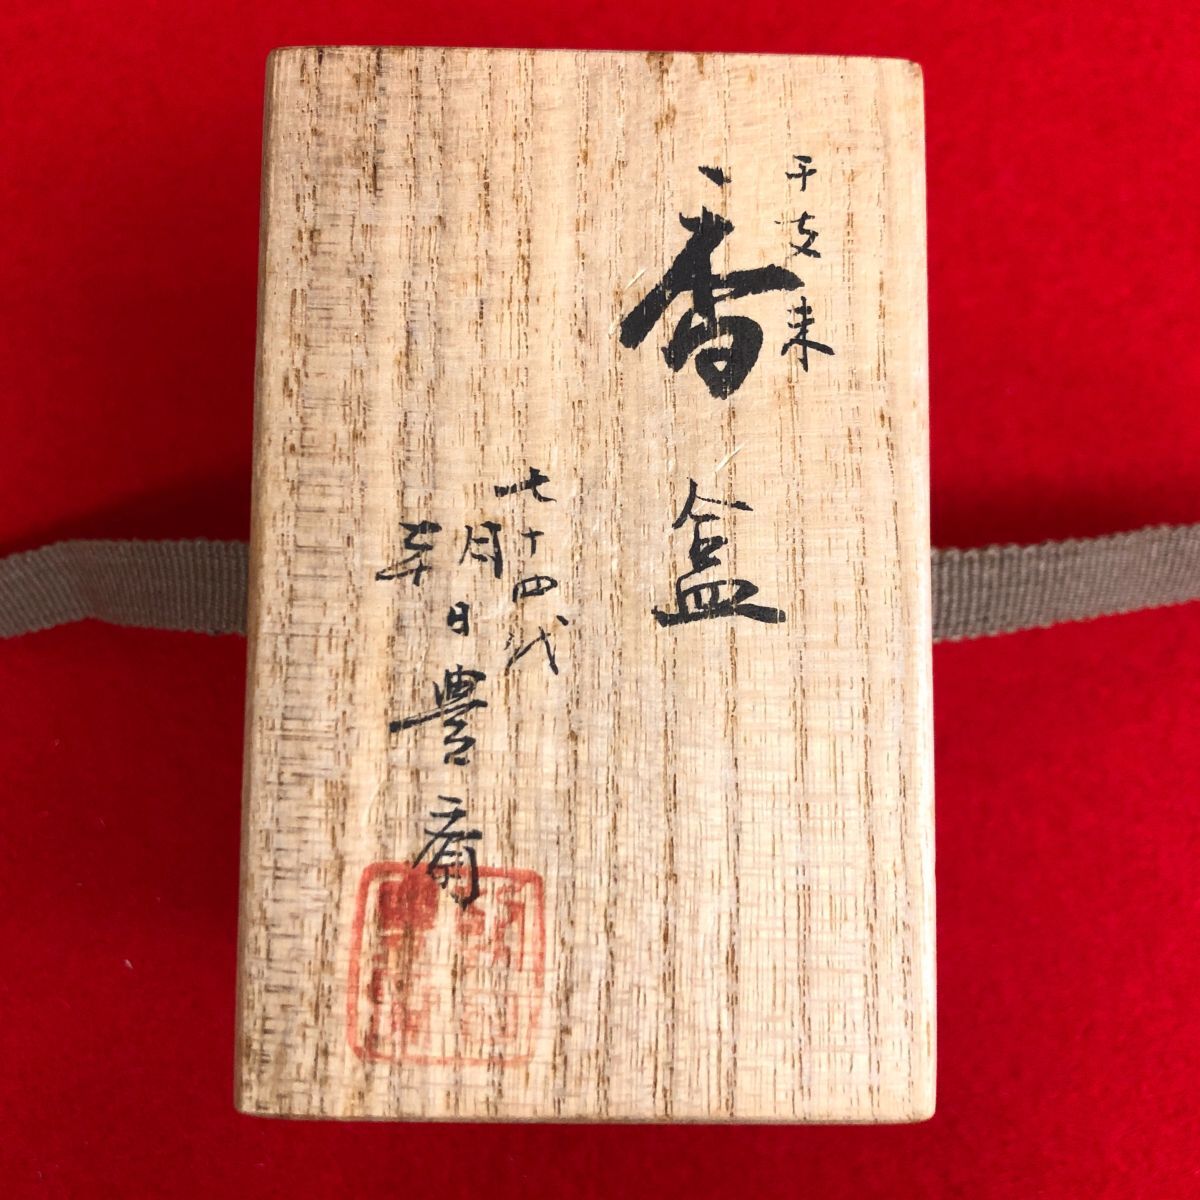 干支未
香盒
七十四代
朝日豊斎